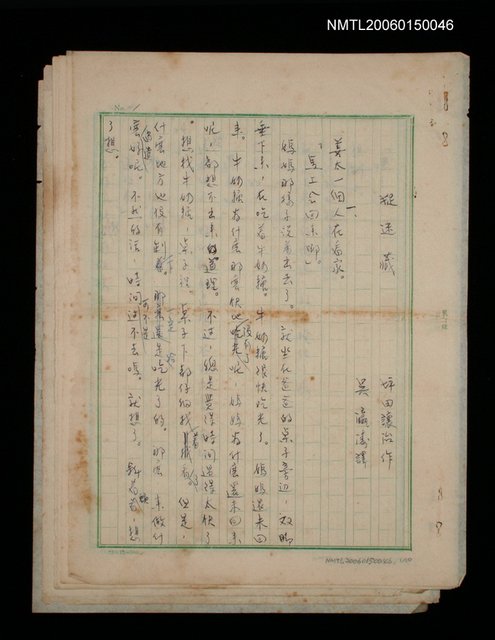 NMTL20060150046
No. 1
捉迷藏
坪田讓治作
吳瀛濤譯
一、
善太一個人在看家。
「馬上會回來啊」。
媽媽那樣子說着出去了。就坐在
的桌子旁边，双脚
垂下來，在吃着牛奶糖。牛奶糖很快吃光了。媽媽還未回
來。牛奶糖為什麼那麼快地吃光呢，媽媽為什麼還未回來
呢，都想不出來的道理。不过，總是覺得時間過得太快了
。想找牛奶糖，桌子後、桌子下都仔細找着。但是，
什麼地方也沒有剩着。那是吃光了的。那麼，來做什
麼好呢。不然的話，時間过不去嘛。就想了。
了想。
NMTL20060150046